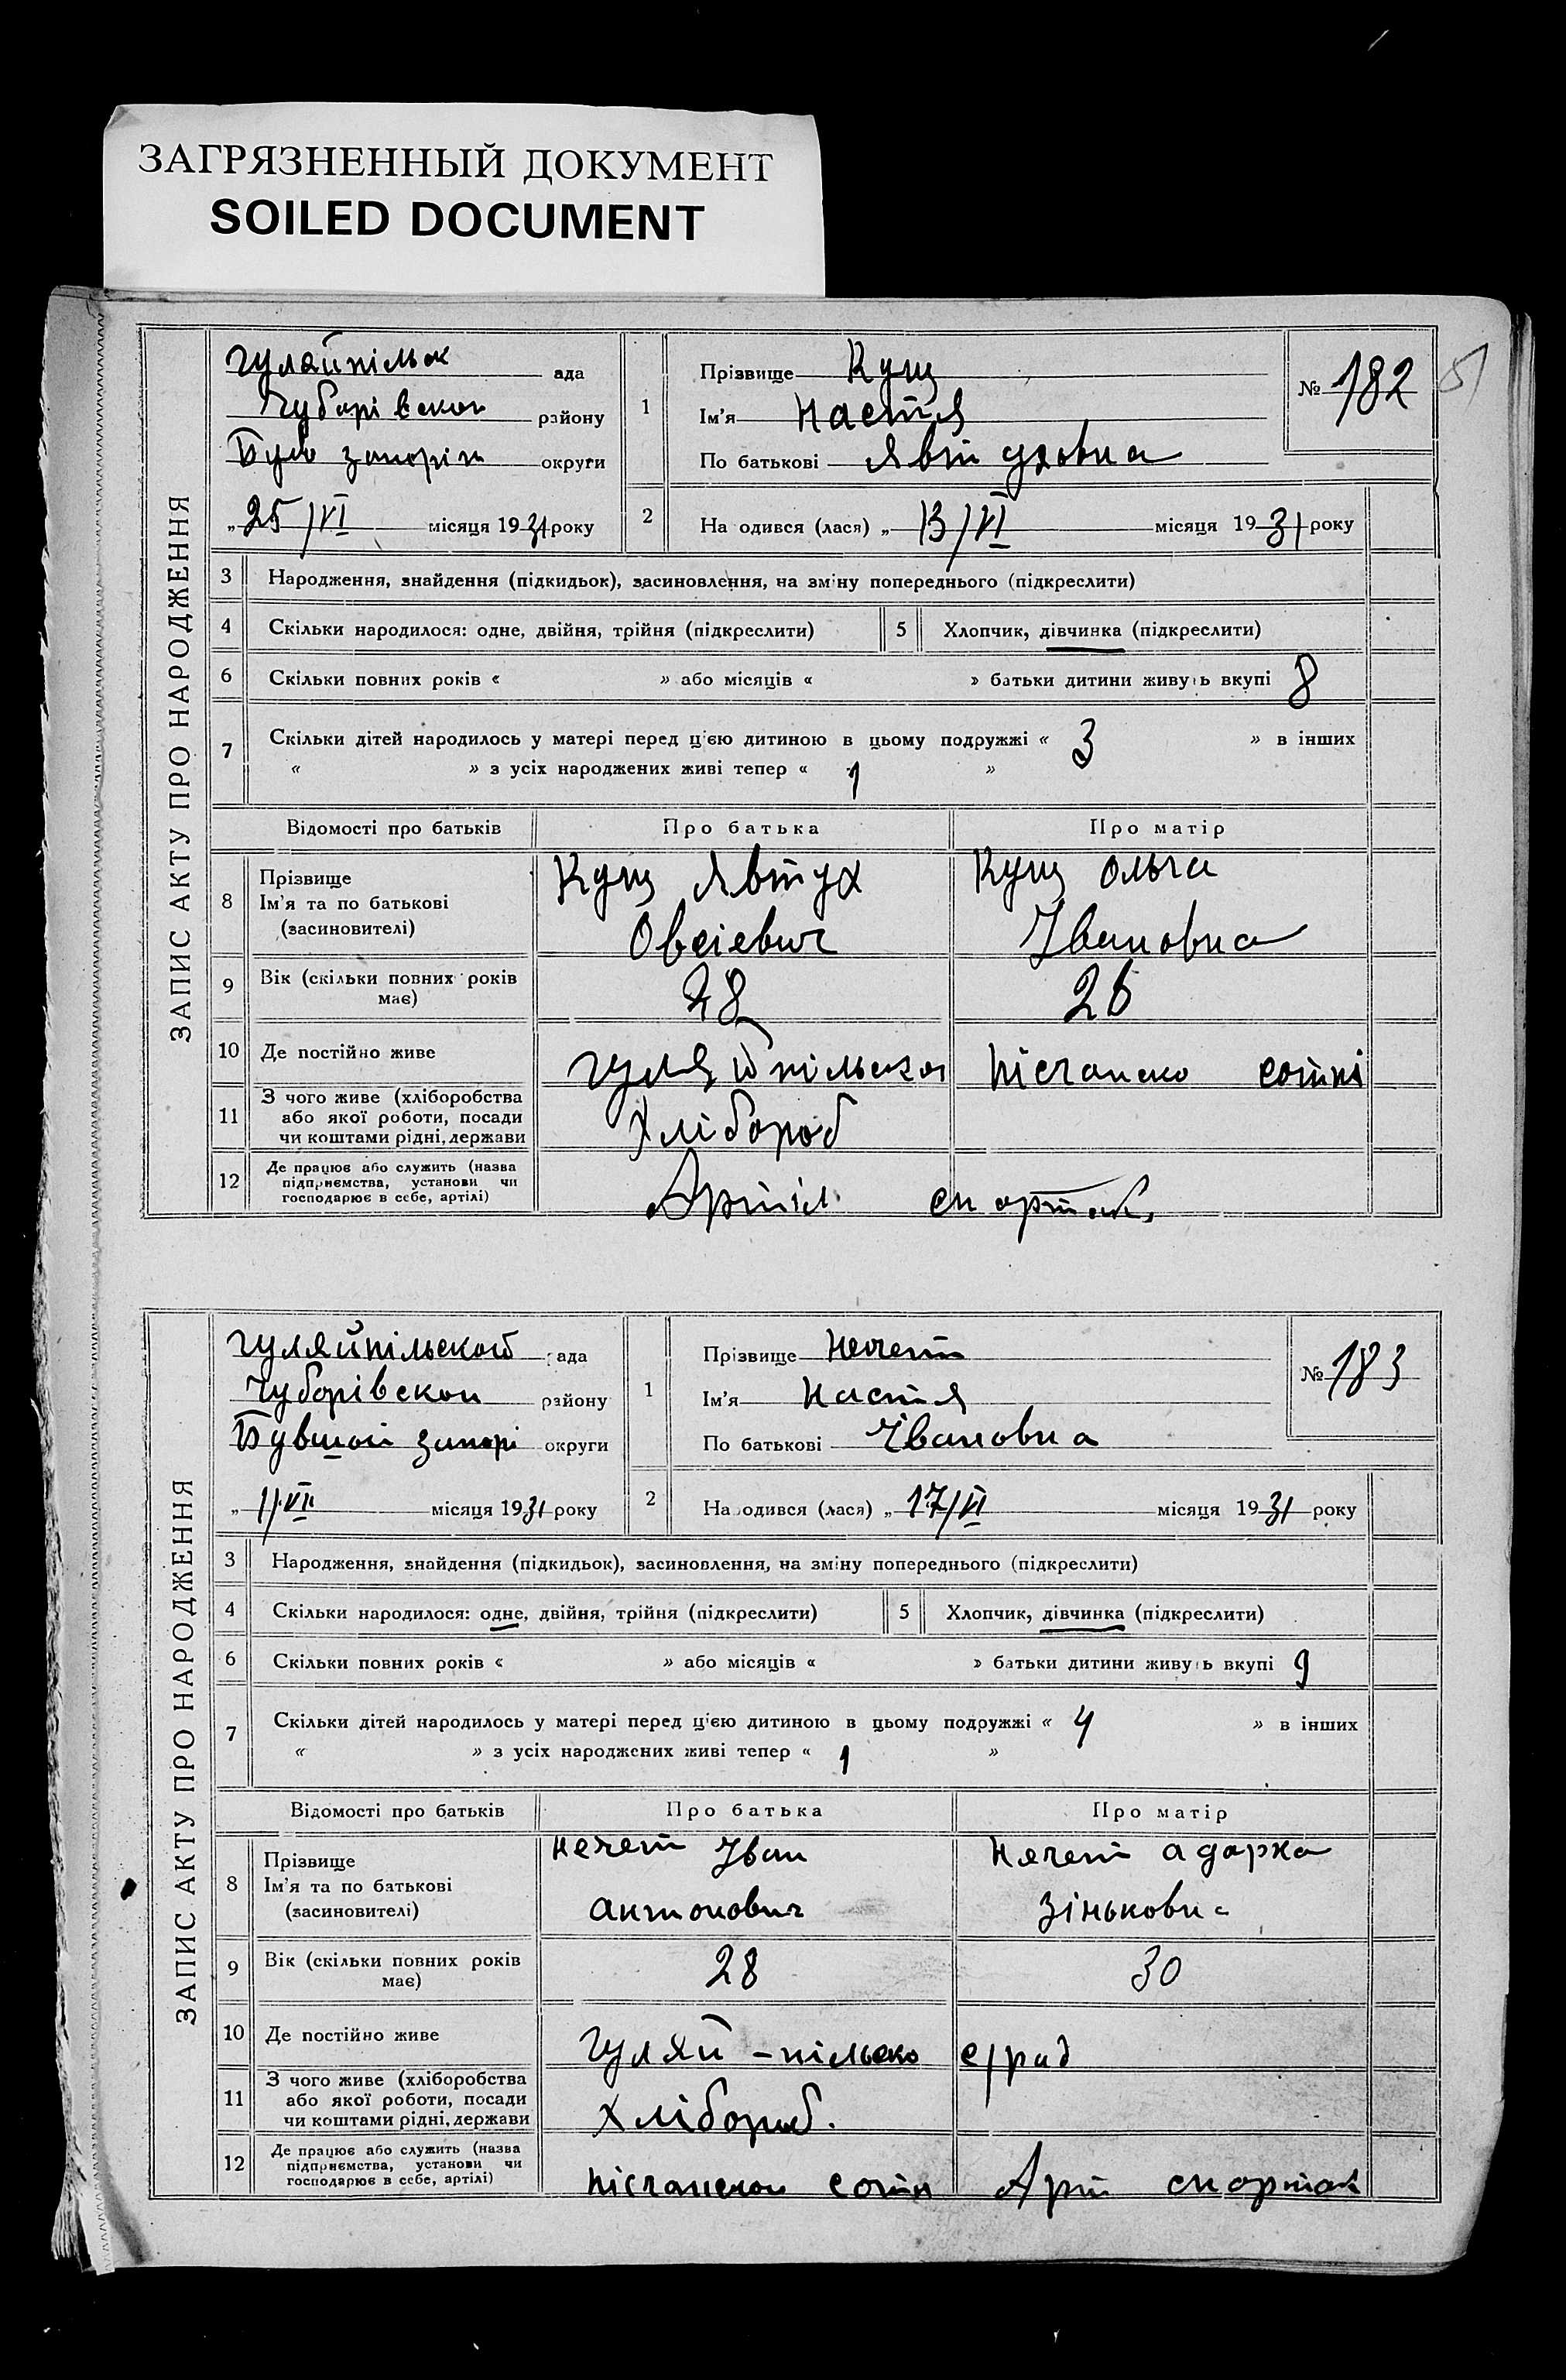 ЗАГРЯЗНЕННЫЙ ДОКУМЕНТ
SOILED DOCUMENT
51
ЗАПИС АКТУ ПРО НАРОДЖЕННЯ
Гуляйпільск ада
Чубарівскої району
Бувш запоріж округи
„ 25/VI місяця 1931 року
1 Прізвище Кущ
Ім'я Настя
По батькові Явтуховна
№ 182
2 На одився (лася) „ 13/VI місяця 1931 року
3 Народження, знайдення (підкидьок), засиновлення, на зміну попереднього (підкреслити)
4 Скільки народилося: одне, двійня, трійня (підкреслити) 5 Хлопчик, дівчинка (підкреслити)
6 Скільки повних років « » або місяців « » батьки дитини живуть вкупі 8
7 Скільки дітей народилось у матері перед цією дитиною в цьому подружжі « 3 » в інших
« » з усіх народжених живі тепер « 1 »
Відомості про батьків Про батька Про матір
8 Прізвище Ім'я та по батькові (засиновителі) Кущ Явтух Овсієвич Кущ Ольга Івановна
9 Вік (скільки повних років має) 28 26
10 Де постійно живе Гуляйпільскої Пісчанско сотні
11 З чого живе (хліборобства або якої роботи, посади чи коштами рідні, держави Хлібороб
12 Де працює або служить (назва підприємства, установи чи господарює в себе, артілі) Артіл спортак
ЗАПИС АКТУ ПРО НАРОДЖЕННЯ
Гуляйпільской ада
Чубарівскои району
Бувшой запорі округи
„ 1/VII місяця 1931 року
1 Прізвище Нечет
Ім'я Настя
По батькові Івановна
№ 183
2 На одився (лася) „ 17/VI місяця 1931 року
3 Народження, знайдення (підкидьок), засиновлення, на зміну попереднього (підкреслити)
4 Скільки народилося: одне, двійня, трійня (підкреслити) 5 Хлопчик, дівчинка (підкреслити)
6 Скільки повних років « » або місяців « » батьки дитини живуть вкупі 9
7 Скільки дітей народилось у матері перед цією дитиною в цьому подружжі « 4 » в інших
« » з усіх народжених живі тепер « 1 »
Відомості про батьків Про батька Про матір
8 Прізвище Ім'я та по батькові (засиновителі) Нечет Іван антонович Нечет адарка Зіньковна
9 Вік (скільки повних років має) 28 30
10 Де постійно живе Гуляй-пільско с/рад
11 З чого живе (хліборобства або якої роботи, посади чи коштами рідні, держави Хлібороб.
12 Де працює або служить (назва підприємства, установи чи господарює в себе, артілі) Пісчанскои сотн Арт спортак